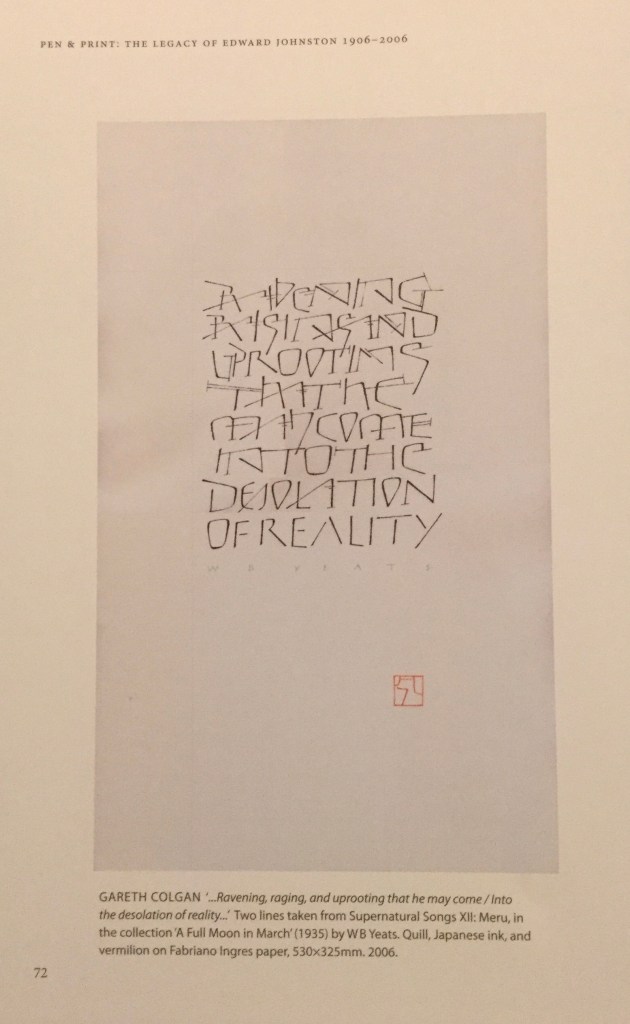 PEN & PRINT: THE LEGACY OF EDWARD JOHNSTON 1906–2006
RAVENING
RAGING AND
UPROOTING
THAT HE
MAY COME
INTO THE
DESOLATION
OF REALITY
W B YEATS
GARETH COLGAN ‘...Ravening, raging, and uprooting that he may come / Into
the desolation of reality...’ Two lines taken from Supernatural Songs XII: Meru, in
the collection ‘A Full Moon in March’ (1935) by W B Yeats. Quill, Japanese ink, and
vermilion on Fabriano Ingres paper, 530×325mm. 2006.
72